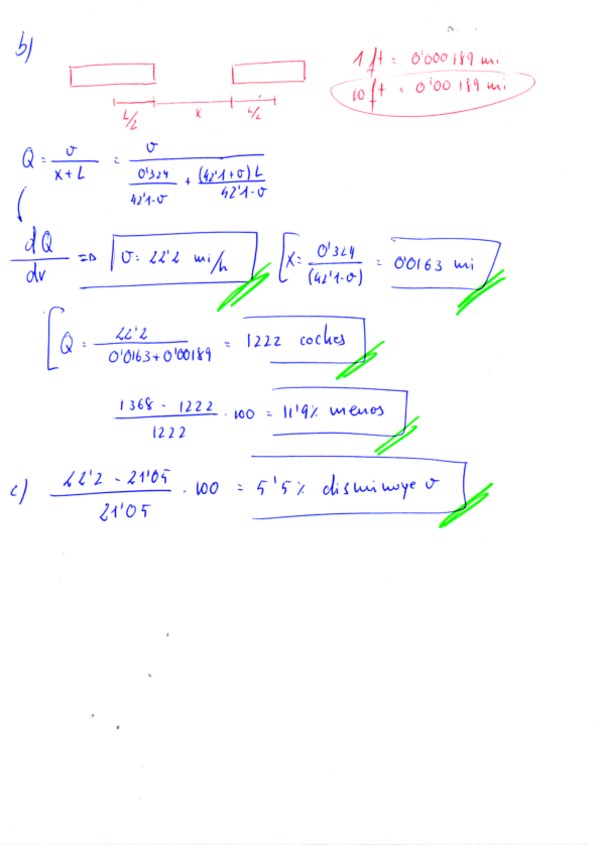 b)
1 ft = 0'000189 mi
10 ft = 0'00189 mi
L/2 x L/2
Q = v / (x+L) = v / (0'324 / (42'1-v) + (42'1+v)L / (42'1-v))
dQ/dv => v = 22'2 mi/h [x = 0'324 / (42'1-v) = 0'0163 mi
[Q = 22'2 / (0'0163+0'00189) = 1222 coches
(1368 - 1222) / 1222 · 100 = 11'9% menos
c) (22'2 - 21'05) / 21'05 · 100 = 5'5% disminuye v